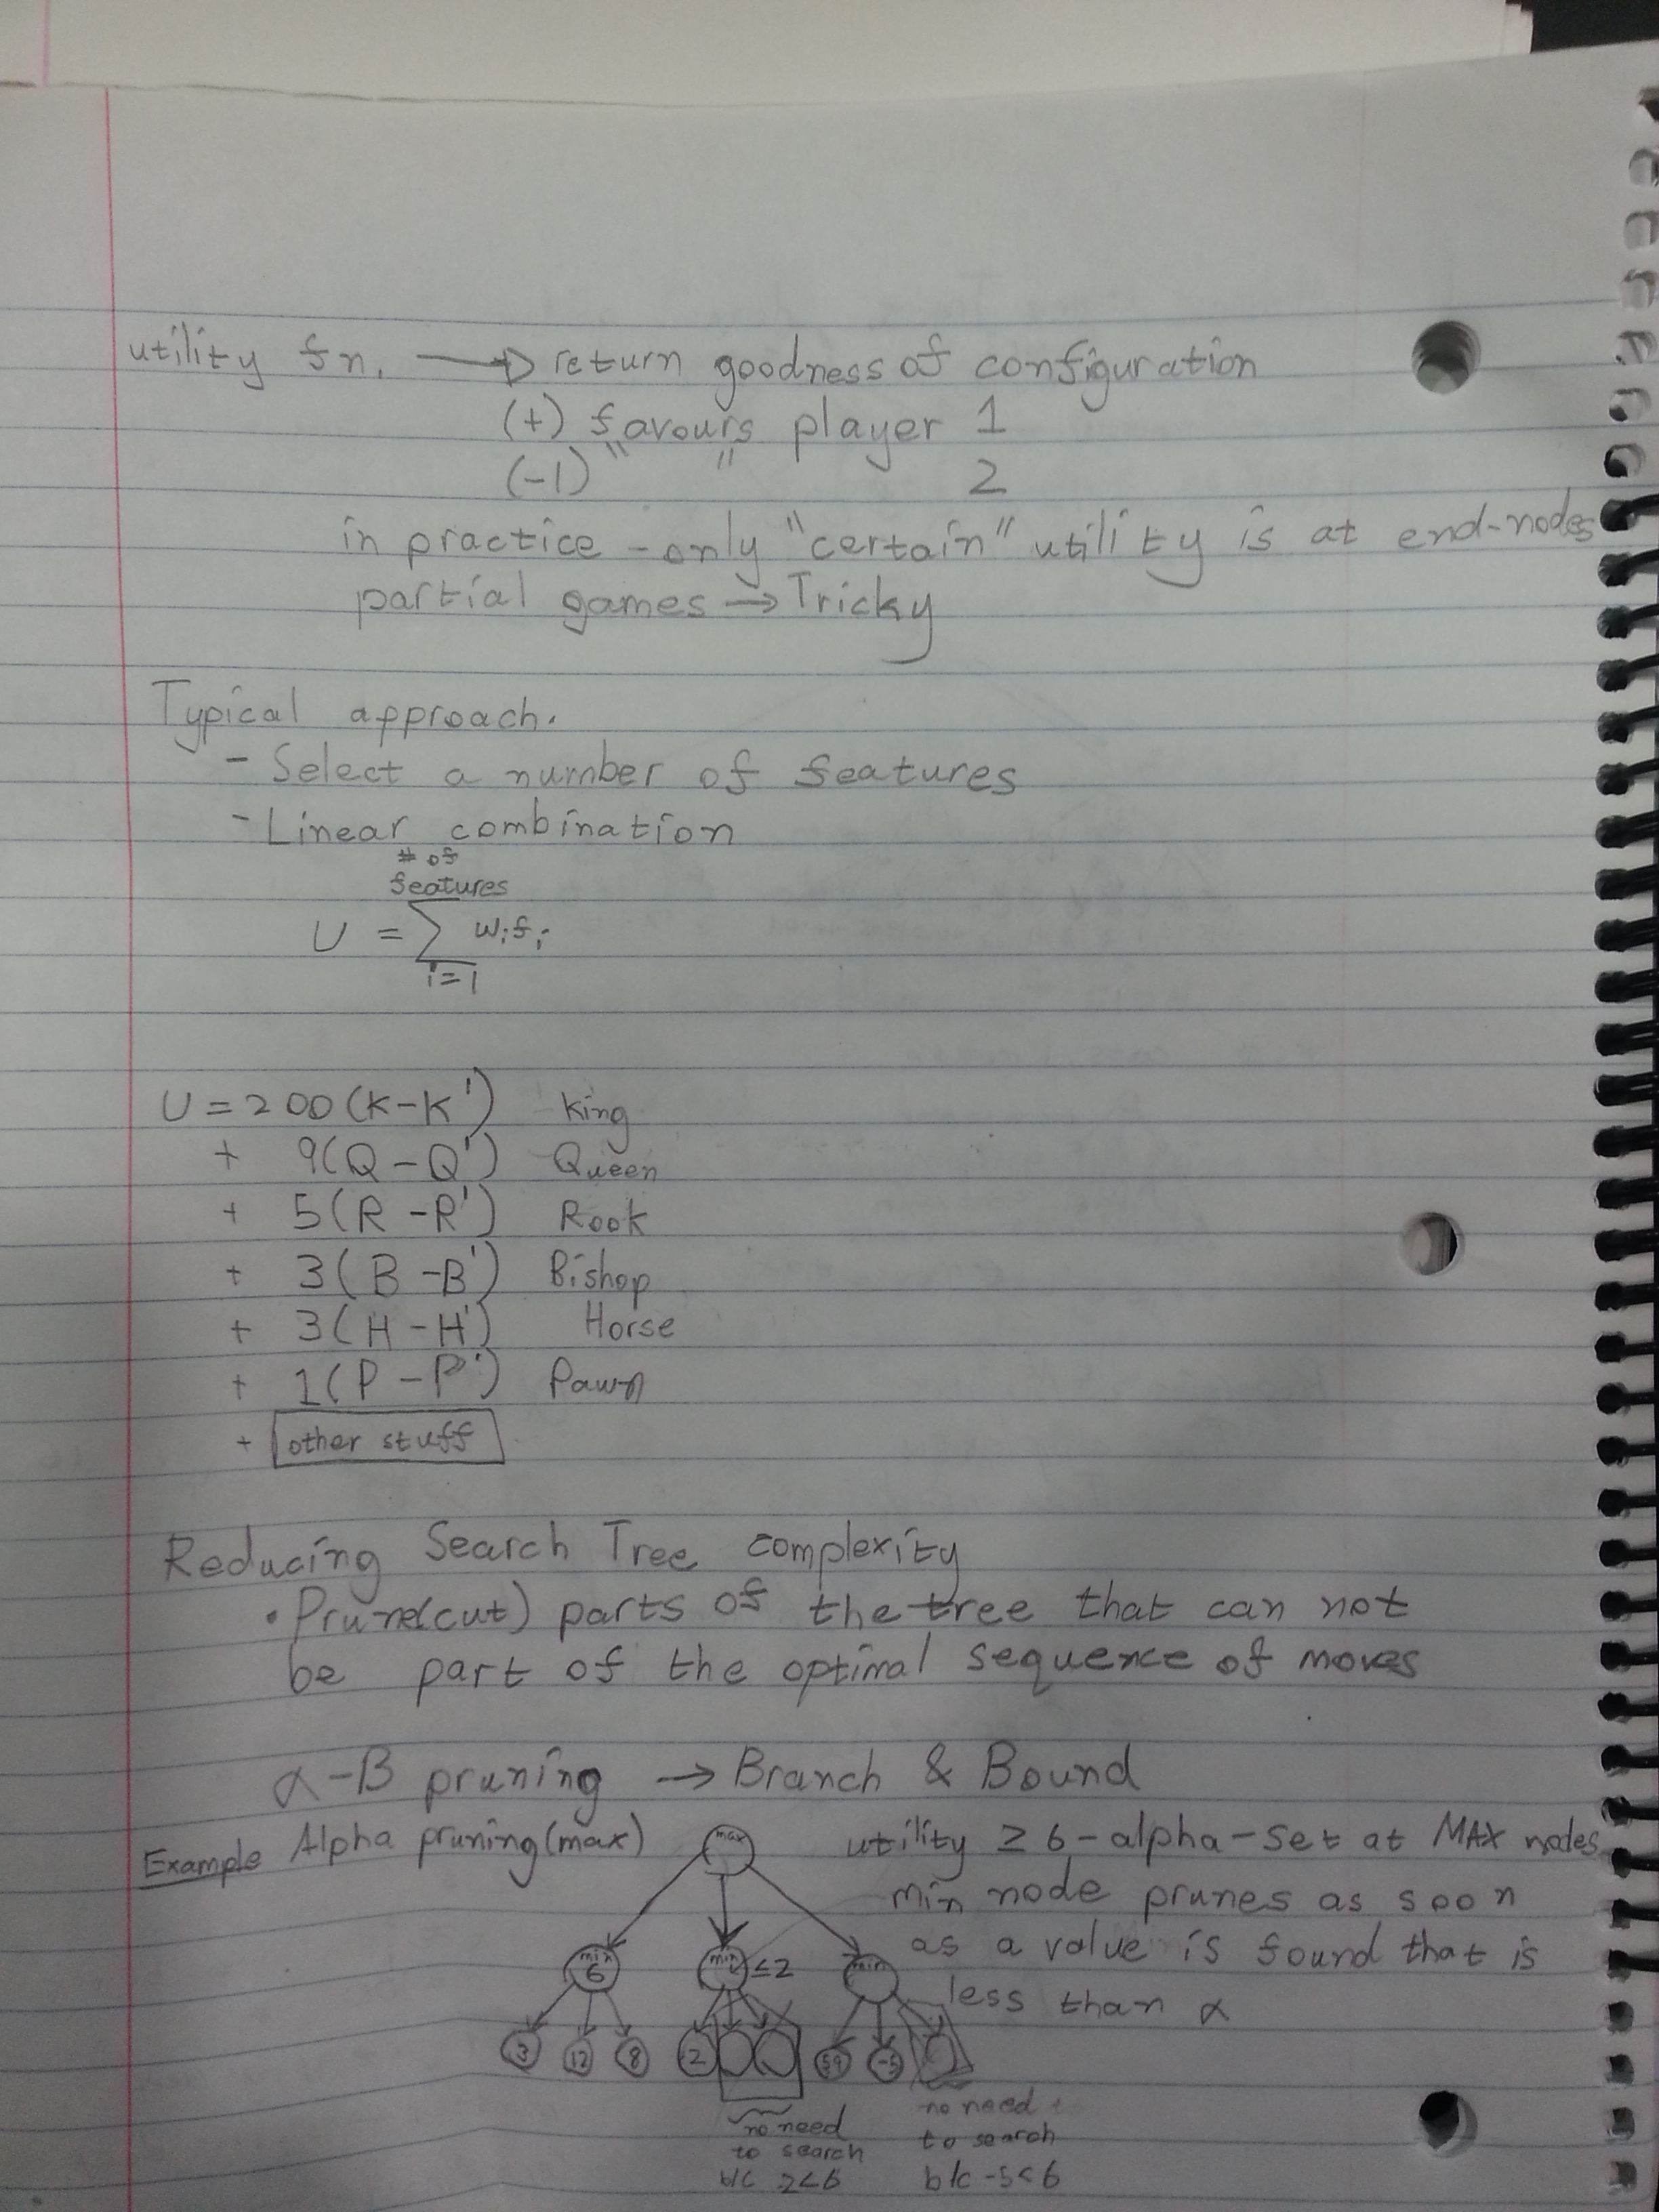 utility fn. → return goodness of configuration
(+) favours player 1
(-1) " " 2
in practice - only "certain" utility is at end-nodes
partial games → Tricky
Typical approach.
- Select a number of features
- Linear combination
# of
features
U = ∑ wifi
i=1
U = 200(K-K') King
+ 9(Q-Q') Queen
+ 5(R-R') Rook
+ 3(B-B') Bishop
+ 3(H-H') Horse
+ 1(P-P') Pawn
+ other stuff
Reducing Search Tree complexity
• Prune(cut) parts of the tree that can not
be part of the optimal sequence of moves
α-B pruning → Branch & Bound
Example Alpha pruning(max) max utility ≥ 6 - alpha - set at MAX nodes
min node prunes as soon
as a value is found that is
less than α
min 6 min ≤2 min
3 12 8 2 59 -5
no need
to search
b/c 2<6
no need
to search
b/c -5<6